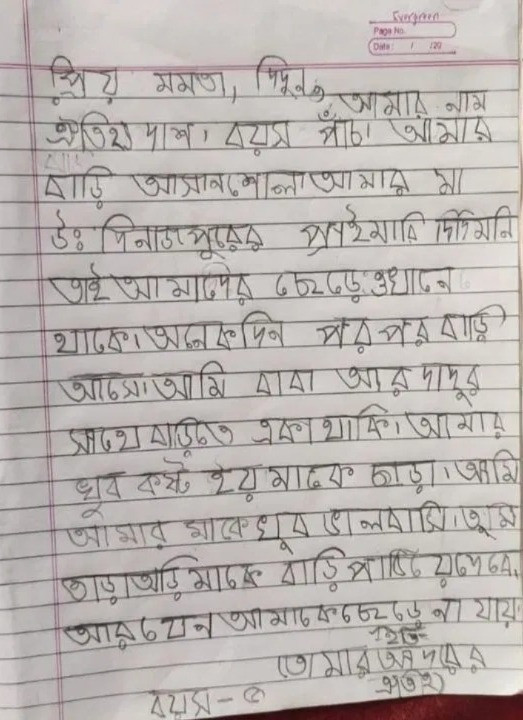 Evergreen
Page No.
Date: / /20
প্রিয় মমতা, দিদুন,
আমার নাম
ঐতিহ্য দাশ। বয়স পাঁচ। আমার
বাড়ি আসানশোল।আমার মা
উঃ দিনাজপুরের প্রাইমারি দিদিমনি
তাই আমাদের ছেড়ে ওখানে
থাকে।অনেকদিন পর পর বাড়ি
আসে।আমি বাবা আর দাদুর
সাথে বাড়িতে একা থাকি। আমার
খুব কষ্ট হয় মাকে ছাড়া। আমি
আমার মাকে খুব ভালবাসি। তুমি
তাড়াতাড়ি মাকে বাড়ি পাঠিয়ে দেবে,
আর যেন আমাকে ছেড়ে না যায়।
ইতি
তোমার আদরের
বয়স - ৫
ঐতিহ্য